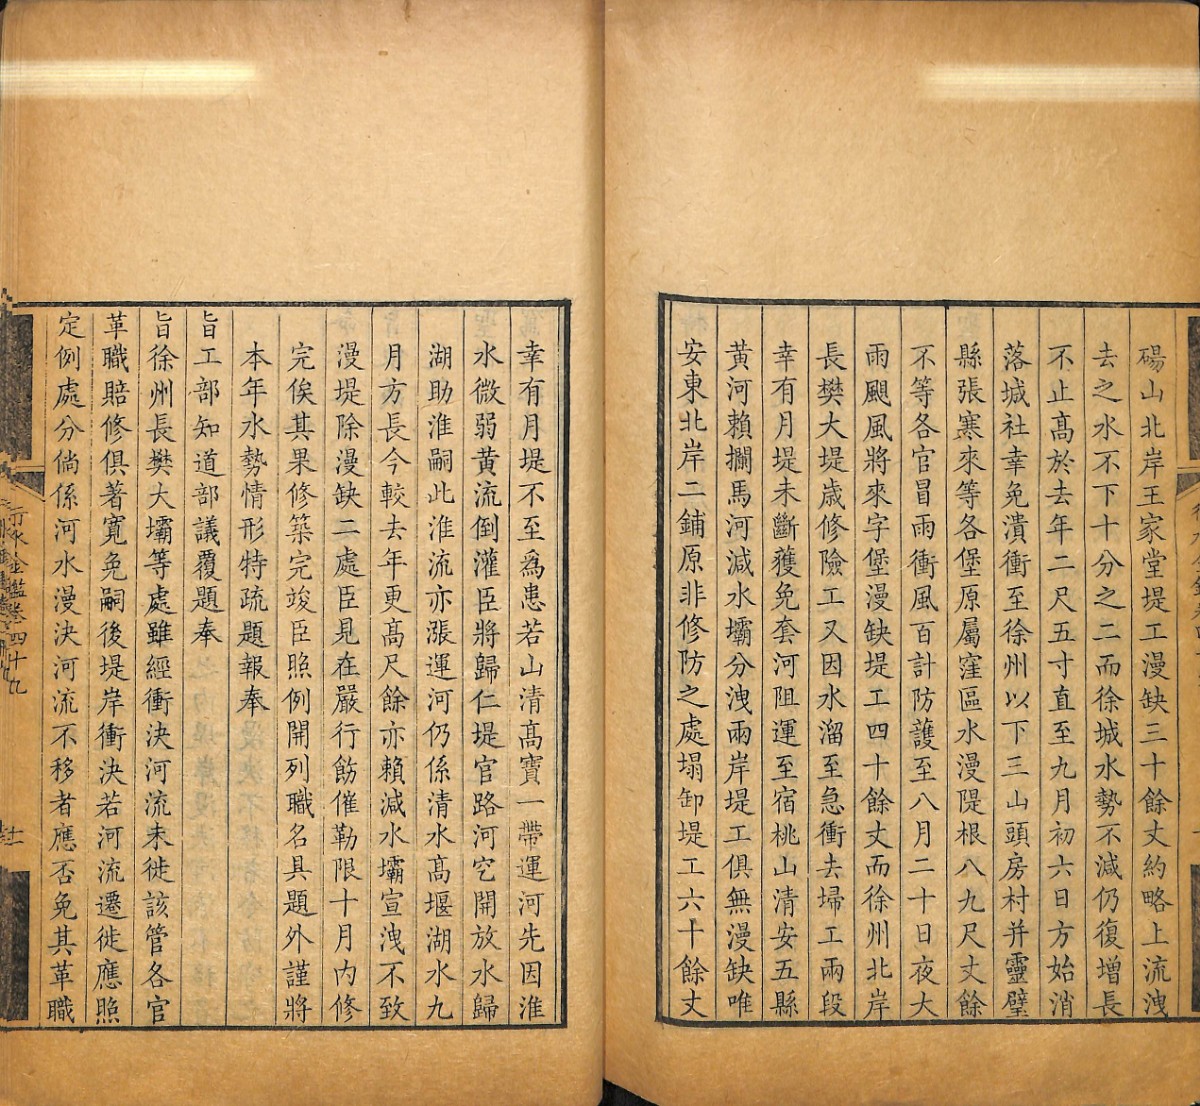 碭山北岸王家堂堤工漫缺三十餘丈約略上流洩
去之水不下十分之二而徐城水勢不減仍復增長
不止高於去年二尺五寸直至九月初六日方始消
落城社幸免潰衝至徐州以下三山頭房村并靈璧
縣張寨來等各堡原屬窪區水漫隄根八九尺丈餘
不等各官冒雨衝風百計防護至八月二十日夜大
雨颶風將來字堡漫缺堤工四十餘丈而徐州北岸
長樊大堤歲修險工又因水溜至急衝去埽工兩段
幸有月堤未斷獲免套河阻運至宿桃山清安五縣
黃河賴攔馬河減水壩分洩兩岸堤工俱無漫缺唯
安東北岸二鋪原非修防之處塌卸堤工六十餘丈
幸有月堤不至為患若山清高寶一帶運河先因淮
水微弱黃流倒灌臣將歸仁堤官路河空開放水歸
湖助淮嗣此淮流亦漲運河仍係清水高堰湖水九
月方長今較去年更高尺餘亦賴減水壩宣洩不致
漫堤除漫缺二處臣見在嚴行飭催勒限十月內修
完俟其果修築完竣臣照例開列職名具題外謹將
本年水勢情形特疏題報奉
旨工部知道部議覆題奉
旨徐州長樊大壩等處雖經衝決河流未徙該管各官
革職賠修俱著寬免嗣後堤岸衝決若河流遷徙應照
定例處分倘係河水漫決河流不移者應否免其革職
行水金鑑卷四十九